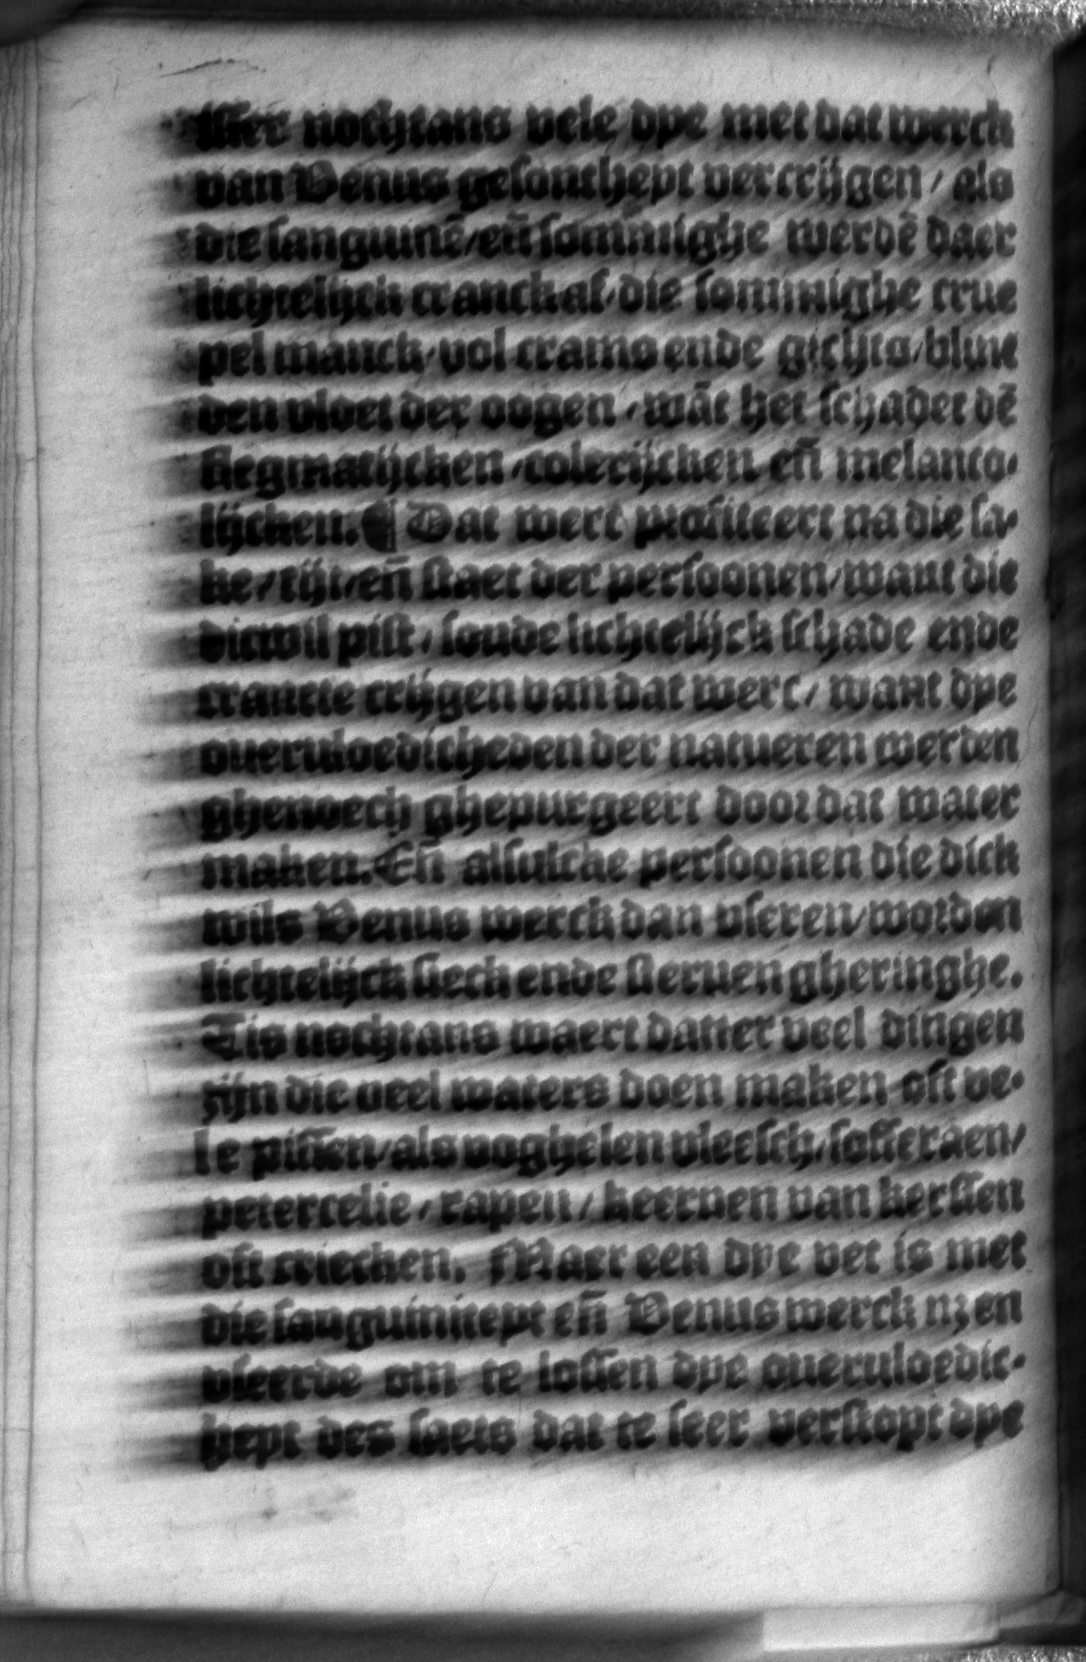 isser nochtans vele dye met dat werck
van Venus gesontheyt vercrijgen / als
die sanguinē / eñ sommighe werdē daer
lichtelijck cranck af / die sommighe crue
pel manck / vol crams ende gichts / blint
den vloet der oogen / wāt het schadet dē
flegmatijcken / colerijcken eñ melanco-
lijcken. ¶ Dat wert profiteert na die sa-
ke / tijt / eñ staet der persoonen / want die
dicwil pist / soude lichtelijck schade ende
crancte crijgen van dat werc / want dye
oueruloedicheden der natueren werden
ghenoech ghepurgeert door dat water
maken. Eñ alsulcke persoonen die dick
wils Venus werck dan vseren / worden
lichtelijck sieck ende steruen gheringhe.
Tis nochtans waert datter veel dingen
zijn die veel waters doen maken oft ve-
le pissen / als voghelen vleesch / sofferaen /
petercelie / rapen / keernen van kerssen
oft criecken. Maer een dye vet is met
die sanguiniteyt eñ Venus werck nz en
vseerde om te lossen dye oueruloedic-
heyt des saets dat te seer verstopt dye